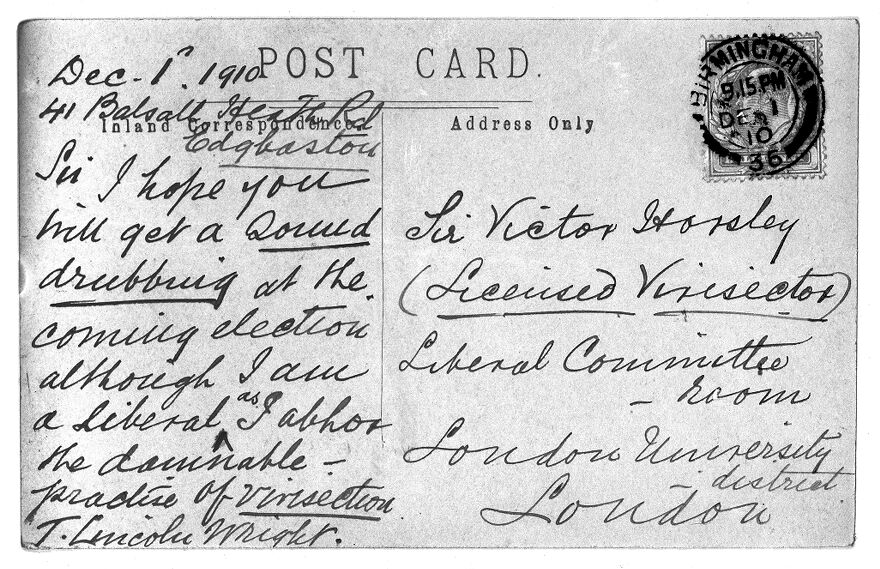 POST CARD.
Inland Correspondence.
Address Only
Dec. 1st. 1910
41 Balsall Heath Rd
Edgbaston
Sir I hope you
will get a sound
drubbing at the
coming election
although I am
a Liberal as I abhor
the damnable –
practise of Vivisection
T. Lincoln Wright.
BIRMINGHAM
9.15 PM
DE 1
10
36
Sir Victor Horsley
(Licensed Vivisector)
Liberal Committee
– Room
London University
– district
London